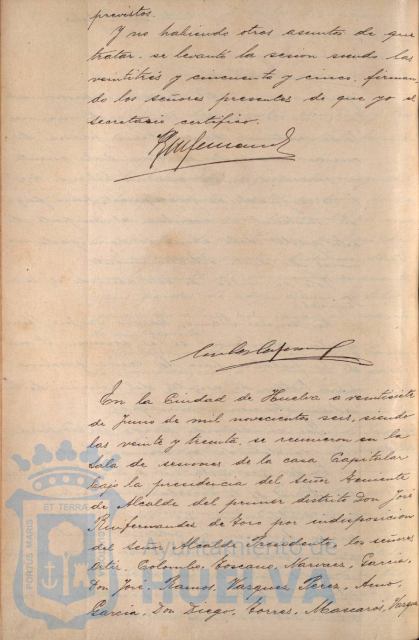 previstos.
Y no habiendo otros asuntos de que
tratar, se levantó la sesion siendo las
veintitrés y cincuenta y cinco, firman-
do los señores presentes de que yo el
secretario certifico.
En la Ciudad de Huelva a veintisiete
de Junio de mil novecientos seis, siendo
las veinte y treinta, se reunieron en la
Sala de sesiones de la casa Capitular
bajo la presidencia del Señor Teniente
de Alcalde del primer distrito Don José
Rmfernandez de toro por indisposicion
del Señor Alcalde Presidente, los señores
Ortiz, Colombo, Toscano, Narvaez, Garcia,
Don José, Ramos, Vazquez Perez,
Garcia, Don Diego, Torres, Mascarós, Vazque
PORTUS MARIS ET TERRAE
Ayuntamiento de
HUELVA